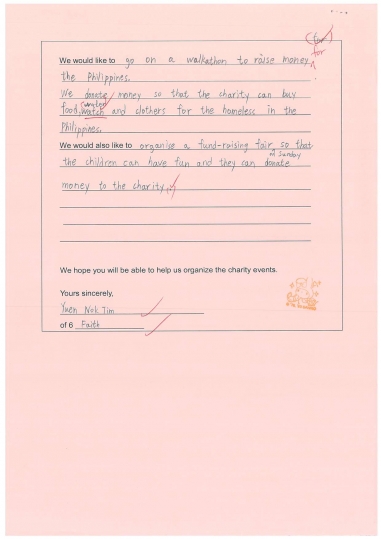 (6)
We would like to go on a walkathon to raise money for
the Philippines.
We donate money so that the charity can buy
food, water watch and clothers for the homeless in the
Philippines.
We would also like to organise a fund-raising fair so that
on Sunday
the children can have fun and they can donate
money to the charity.
We hope you will be able to help us organize the charity events.
Yours sincerely,
Yuen Nok Tim
of 6 Faith